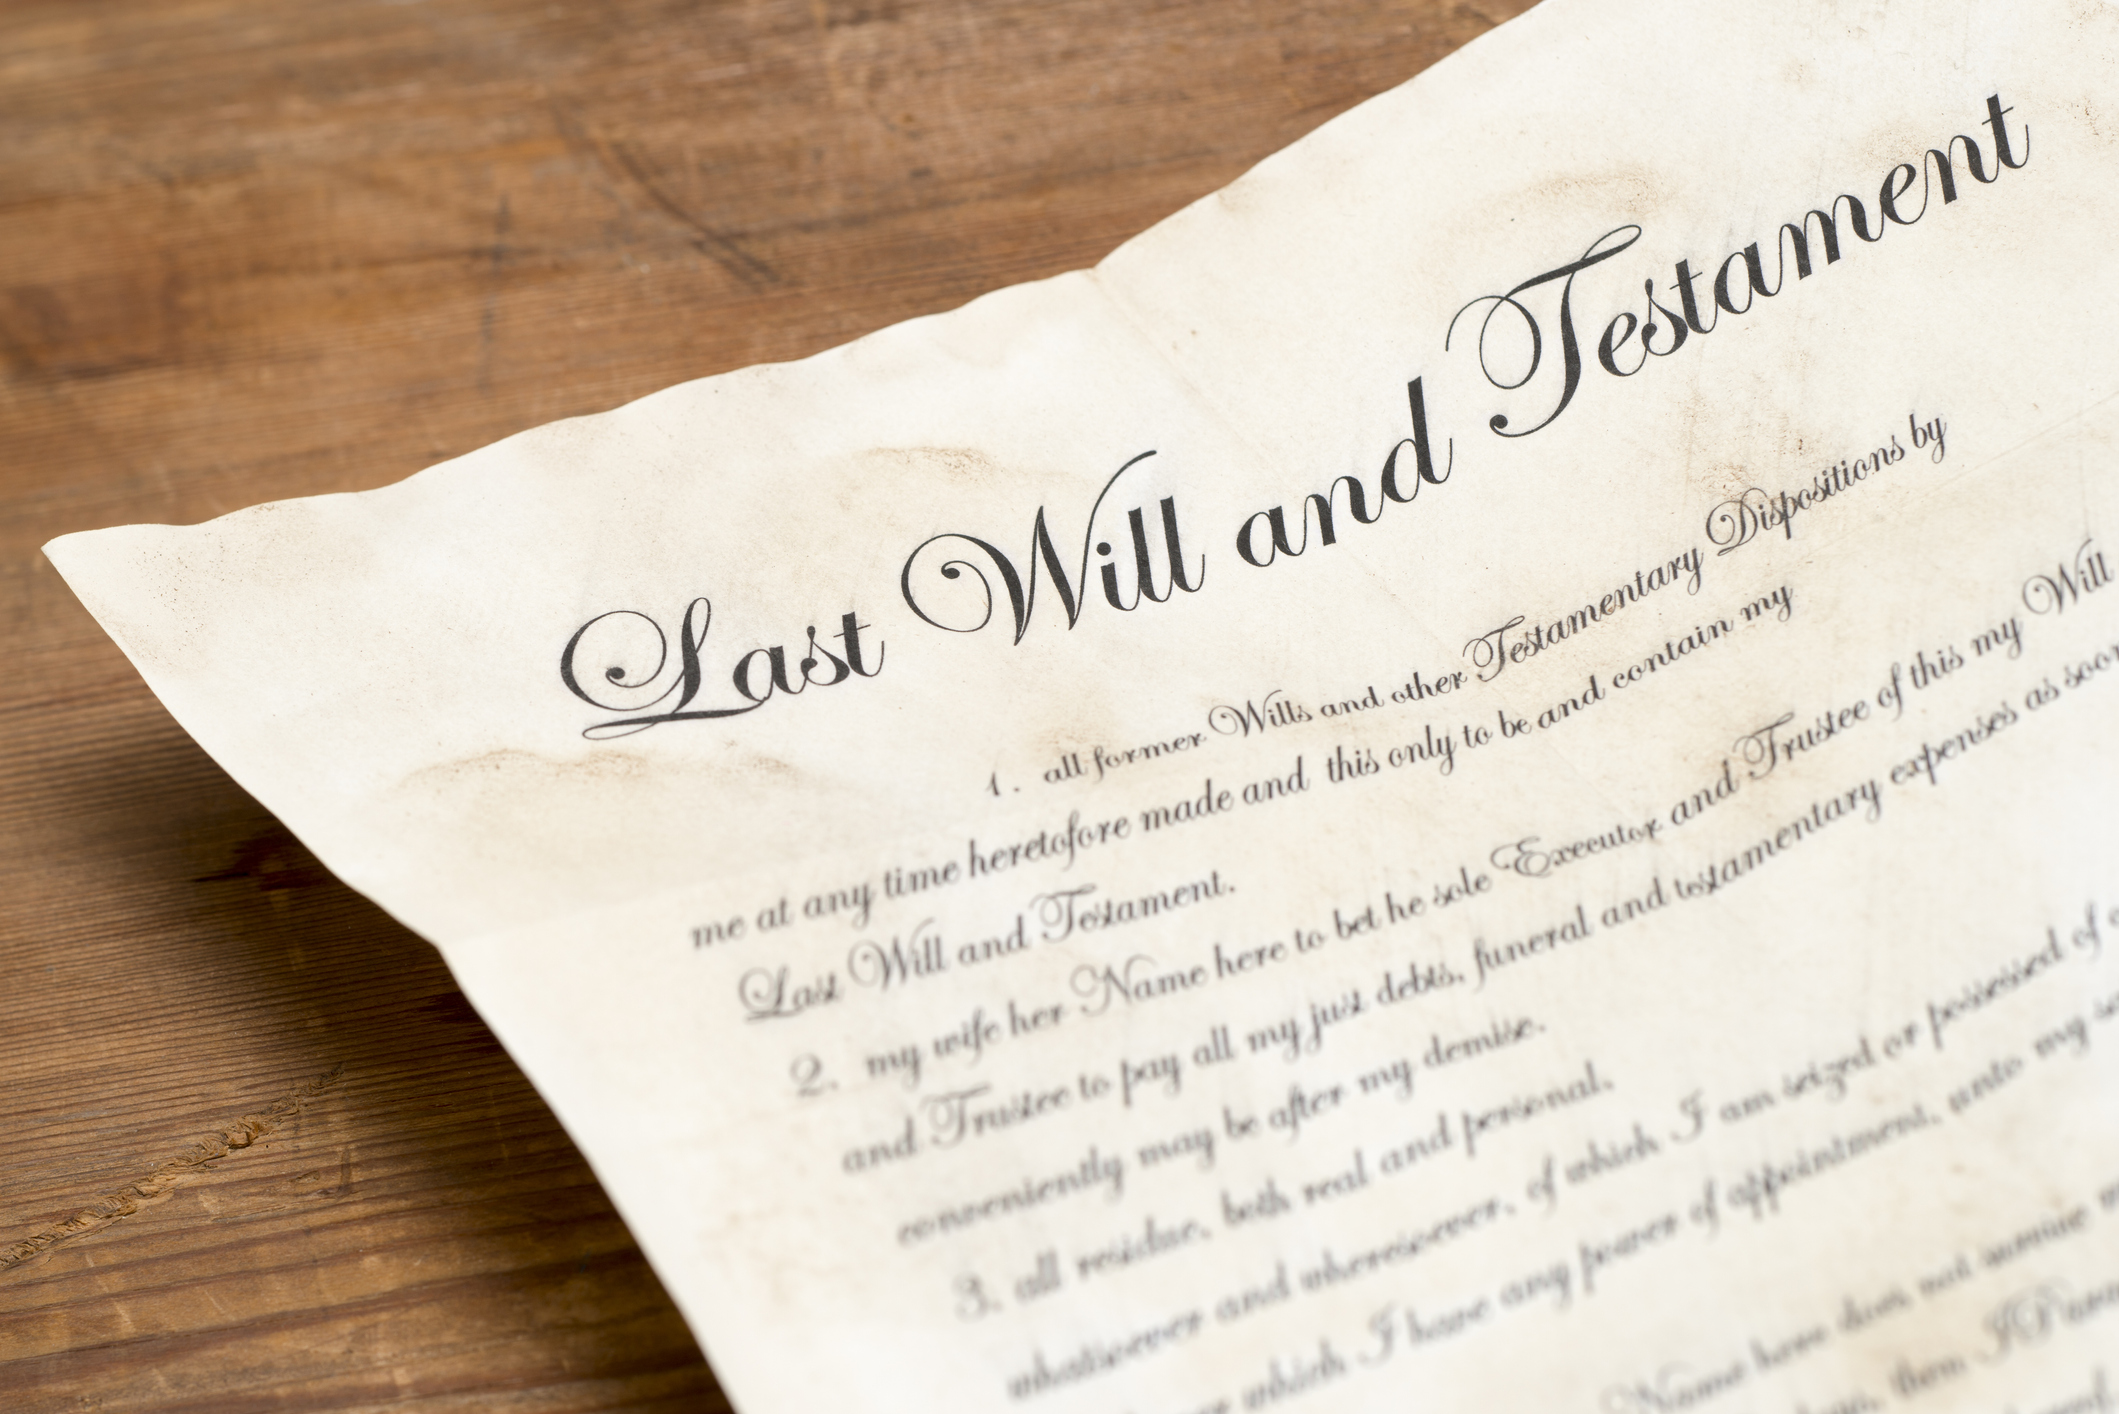 Last Will and Testament
1. all former Wills and other Testamentary Dispositions by
me at any time heretofore made and this only to be and contain my
Last Will and Testament.
2. my wife her Name here to bet he sole Executor and Trustee of this my Will
and Trustee to pay all my just debts, funeral and testamentary expenses as soon
conveniently may be after my demise.
3. all residue, both real and personal,
whatsoever and wheresoever, of which I am seized or possessed of
which I have any power of appointment, unto my
Name here does not survive
them I